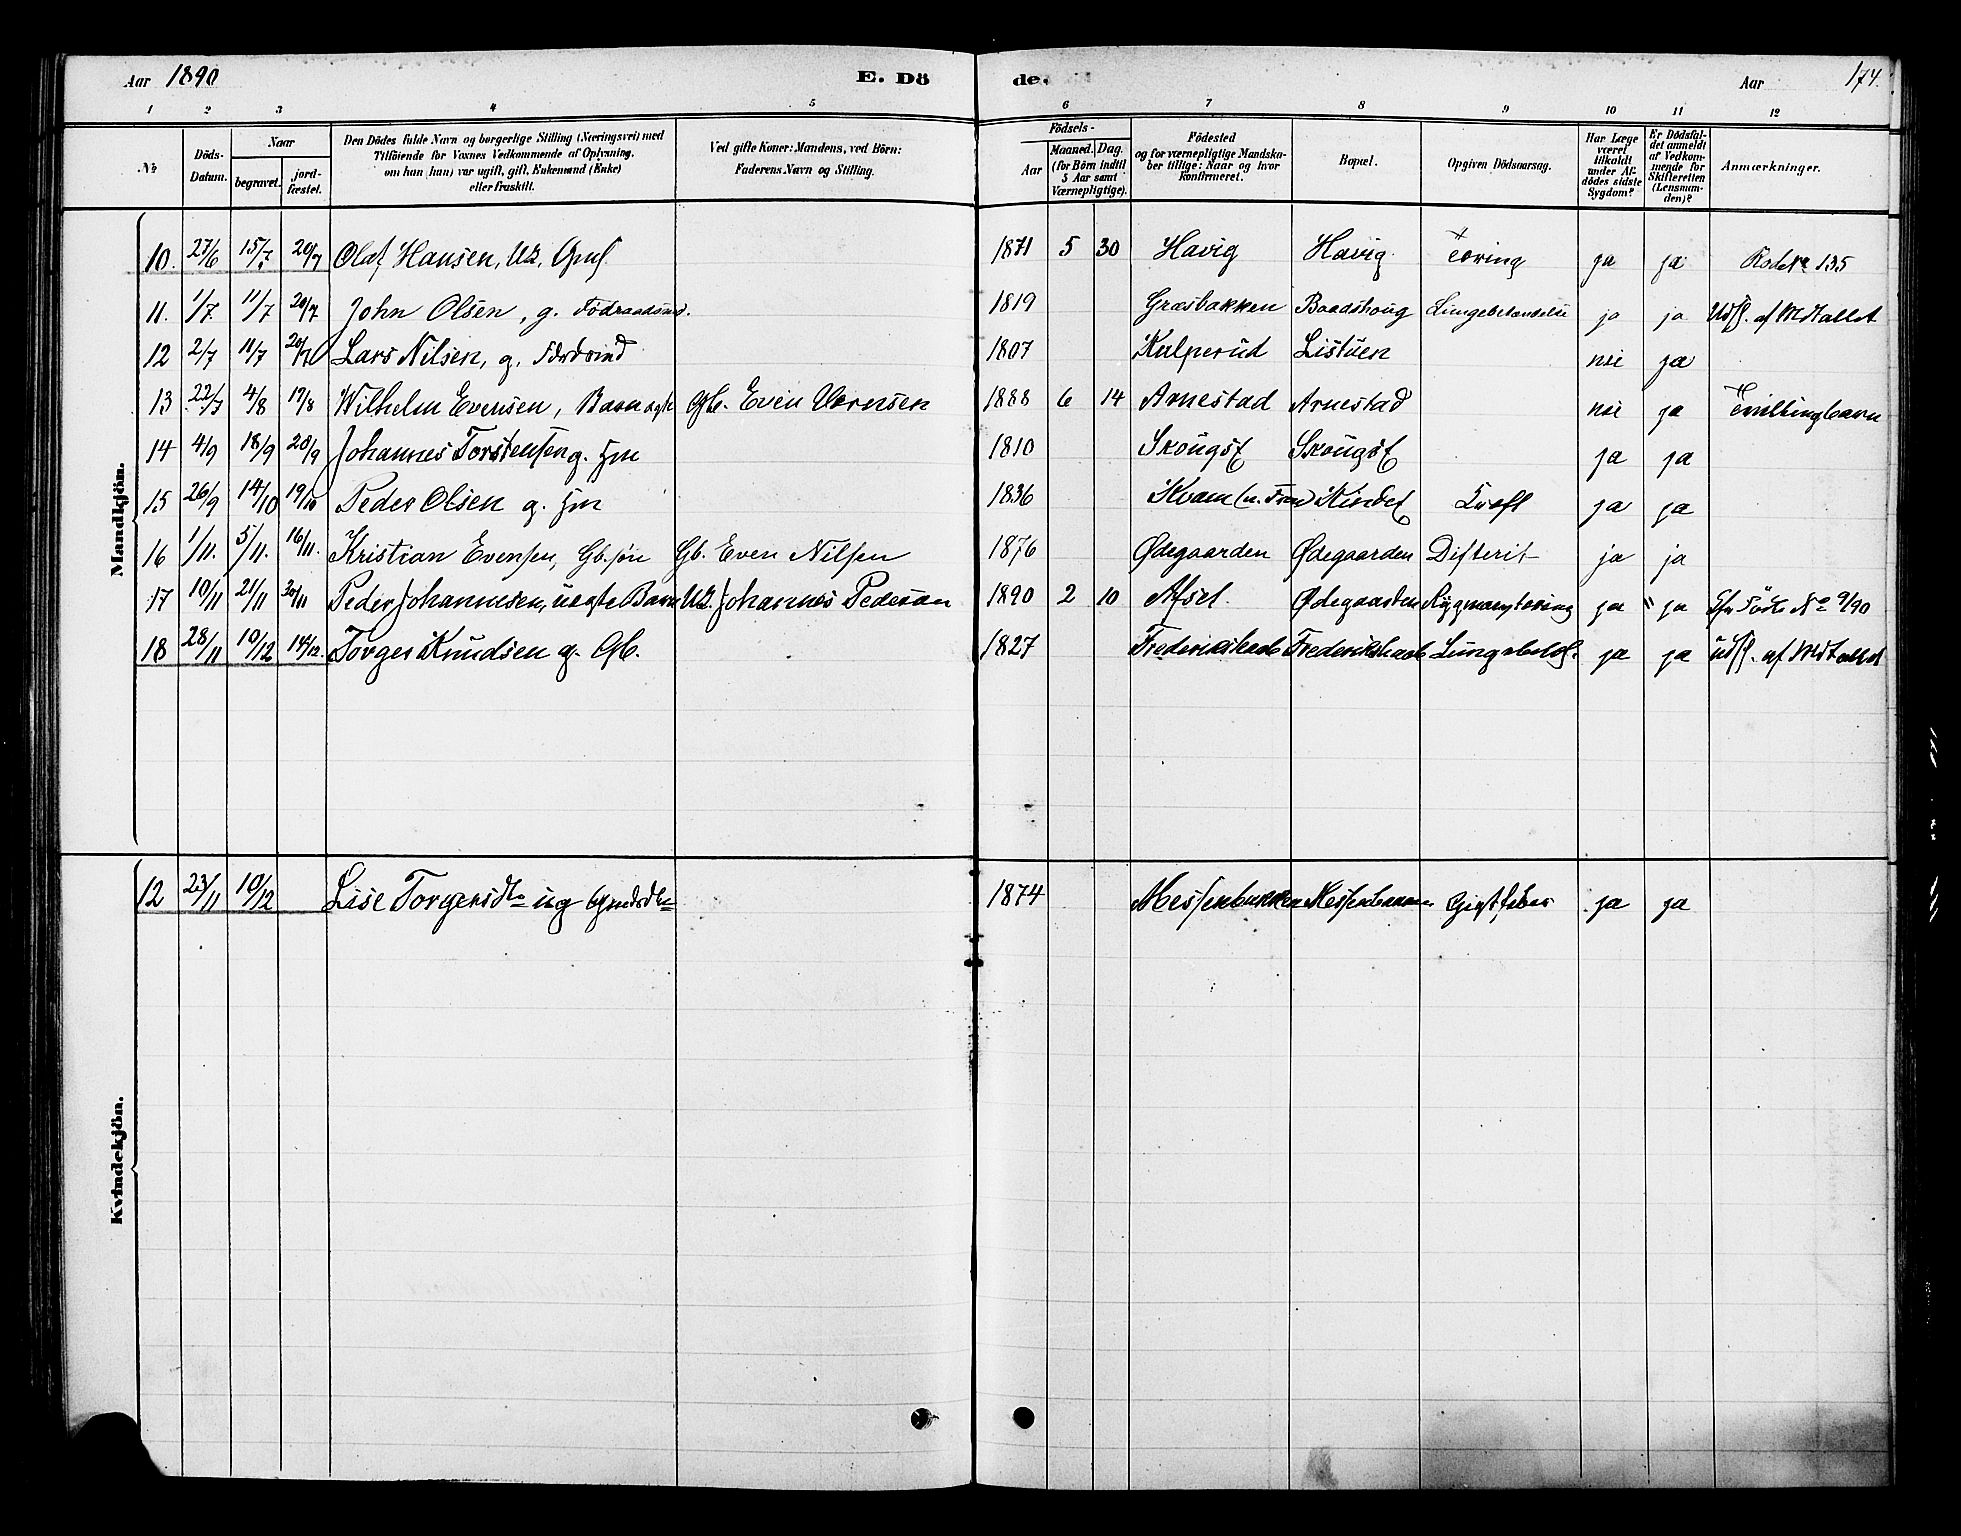 Aar 1890 E. Dö de. Aar 174.
1 2 3 4 5 6 7 8 9 10 11 12
No Döds-Datum. Naar begravet. jord-fæstet. Den Dödes fulde Navn og borgerlige Stilling (Næringsvei) med Tilföiende for Voxnes Vedkommende af Oplysning, om han (hun) var ugift, gift, Enkemand (Enke) eller fraskilt. Ved gifte Koner: Mandens, ved Börn: Faderens Navn og Stilling. Födsels- Aar Maaned. Dag. (for Börn indtil 5 Aar samt Værnepligtige). Födested og for værnepligtige Mandskaber tillige: Naar og hvor Konfirmeret. Bopæl. Opgiven Dödsaarsag. Har Læge været tilkaldt under Afdödes sidste Sygdom? Er Dödsfaldet anmeldt af Vedkommende for Skifteretten (Lensmanden)? Anmærkninger.
Mandkjön.
10. 27/6 15/7 20/7 Olaf Hansen, 1871 5 30 Havig Havig Tæring ja ja 135
11. 1/7 11/7 20/7 John Olsen, g. Födraadsmd. 1819 Græsbakken Baadshoug Lungebetændelse ja ja Udfl. af Mdtallet
12 2/7 11/7 20/7 Lars Nilsen, g. 1807 Kulperud Listuen nei ja
13 22/7 4/8 17/8 Wilhelm Evensen, Barn ægte Gb. Even 1888 6 14 Arnestad Arnestad nei ja Tvillingbarn
14 4/9 18/9 28/9 Johannes Torstensen g. Hm 1810 Skougst Skougst ja ja
15 26/9 14/10 19/10 Peder Olsen g. Hm 1836 Kvam ja ja
16 1/11. 5/11. 16/11. Kristian Evensen, Gb.søn Gb. Even Nilsen 1876 Ødegaarden Ødegaarden Difterit ja ja
17 10/11 21/11 30/11 Peder Johannesen, uægte Barn Johannes Pedersen 1890 2 10 Afsel. Ødegaarden Rygmarvstæring ja ja Födte No 9/90
18 28/11 10/12 14/12. Torger Knudsen g. Gb. 1827 Frederikshaab Frederikshaab ja ja udfl. af Mdtallet
Kvindekjön.
12 23/11 10/12 Lise Torgersdtr ug 1874 Messenbakken Messenbakken Gigtfeber ja ja